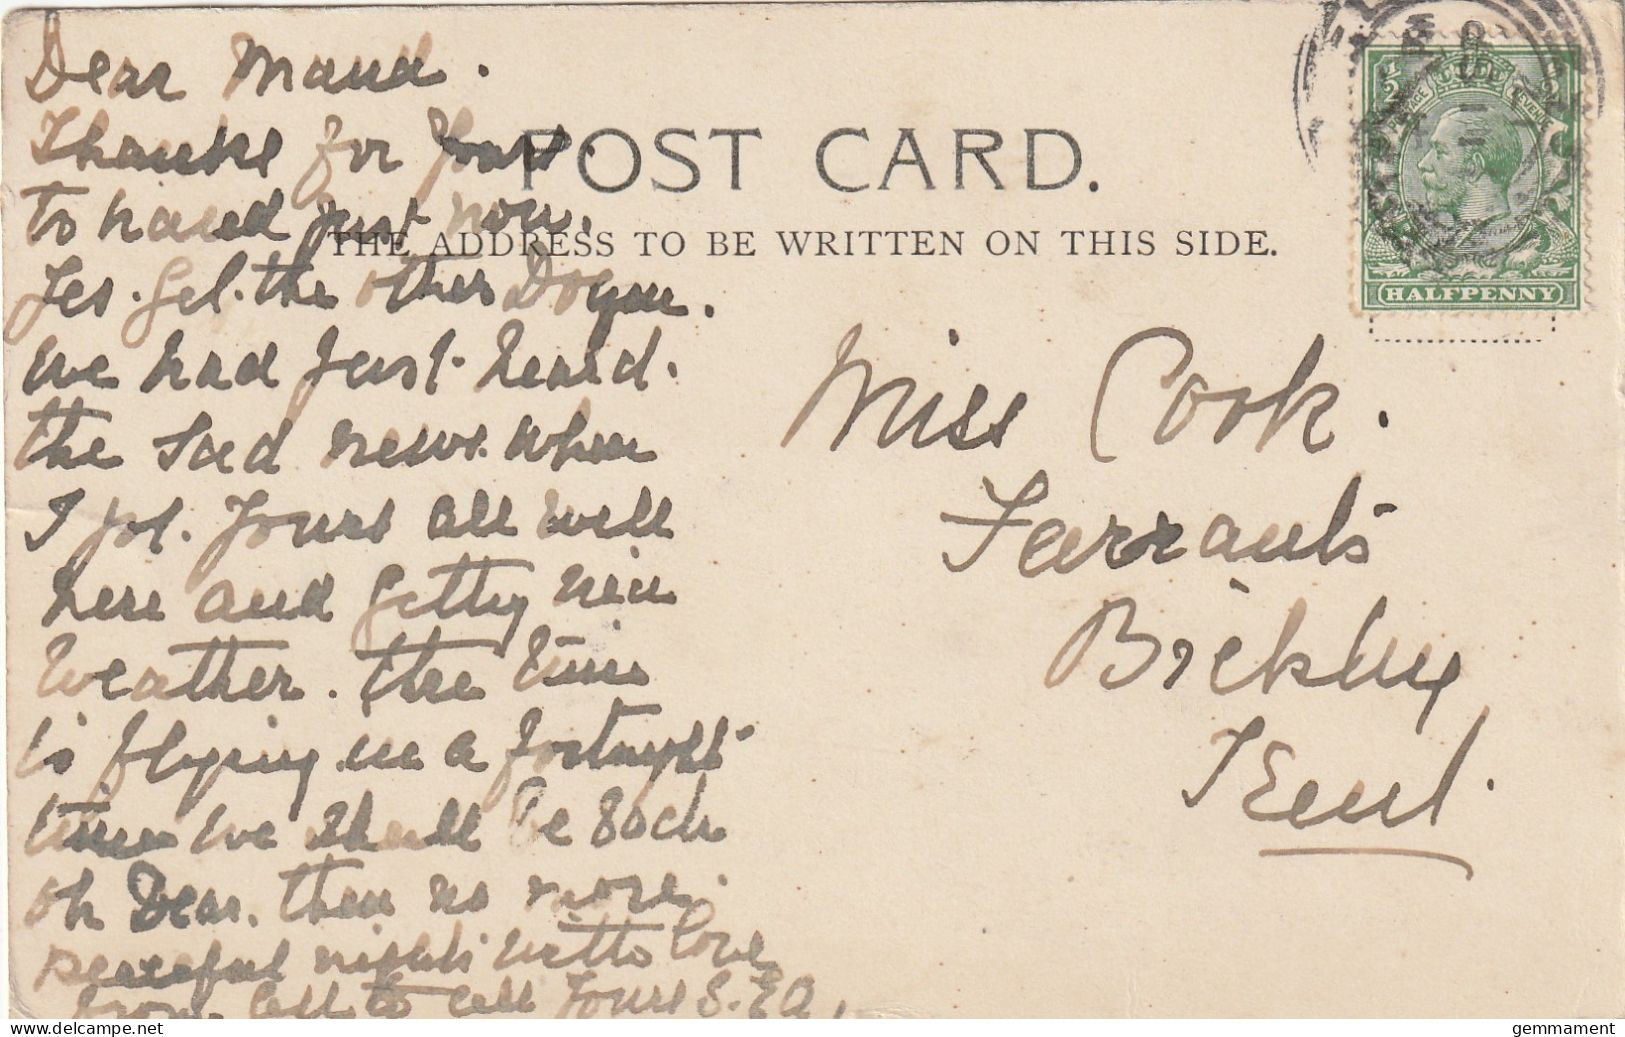 Dear Maud.
Thanks for yours.
to hand just now.
Yes. the other
we had just heard.
the sad news. when
I got. Yours all well
here and getting nice
weather. the time
is flying. in a fortnight
time we shall be back
oh Dear. then no more.
peaceful nights with love
from all to all Yours S.
POST CARD.
THE ADDRESS TO BE WRITTEN ON THIS SIDE.
POSTAGE REVENUE
1/2 1/2
HALFPENNY
Miss Cook.
Farrants
Bickley
Kent.
gemmament